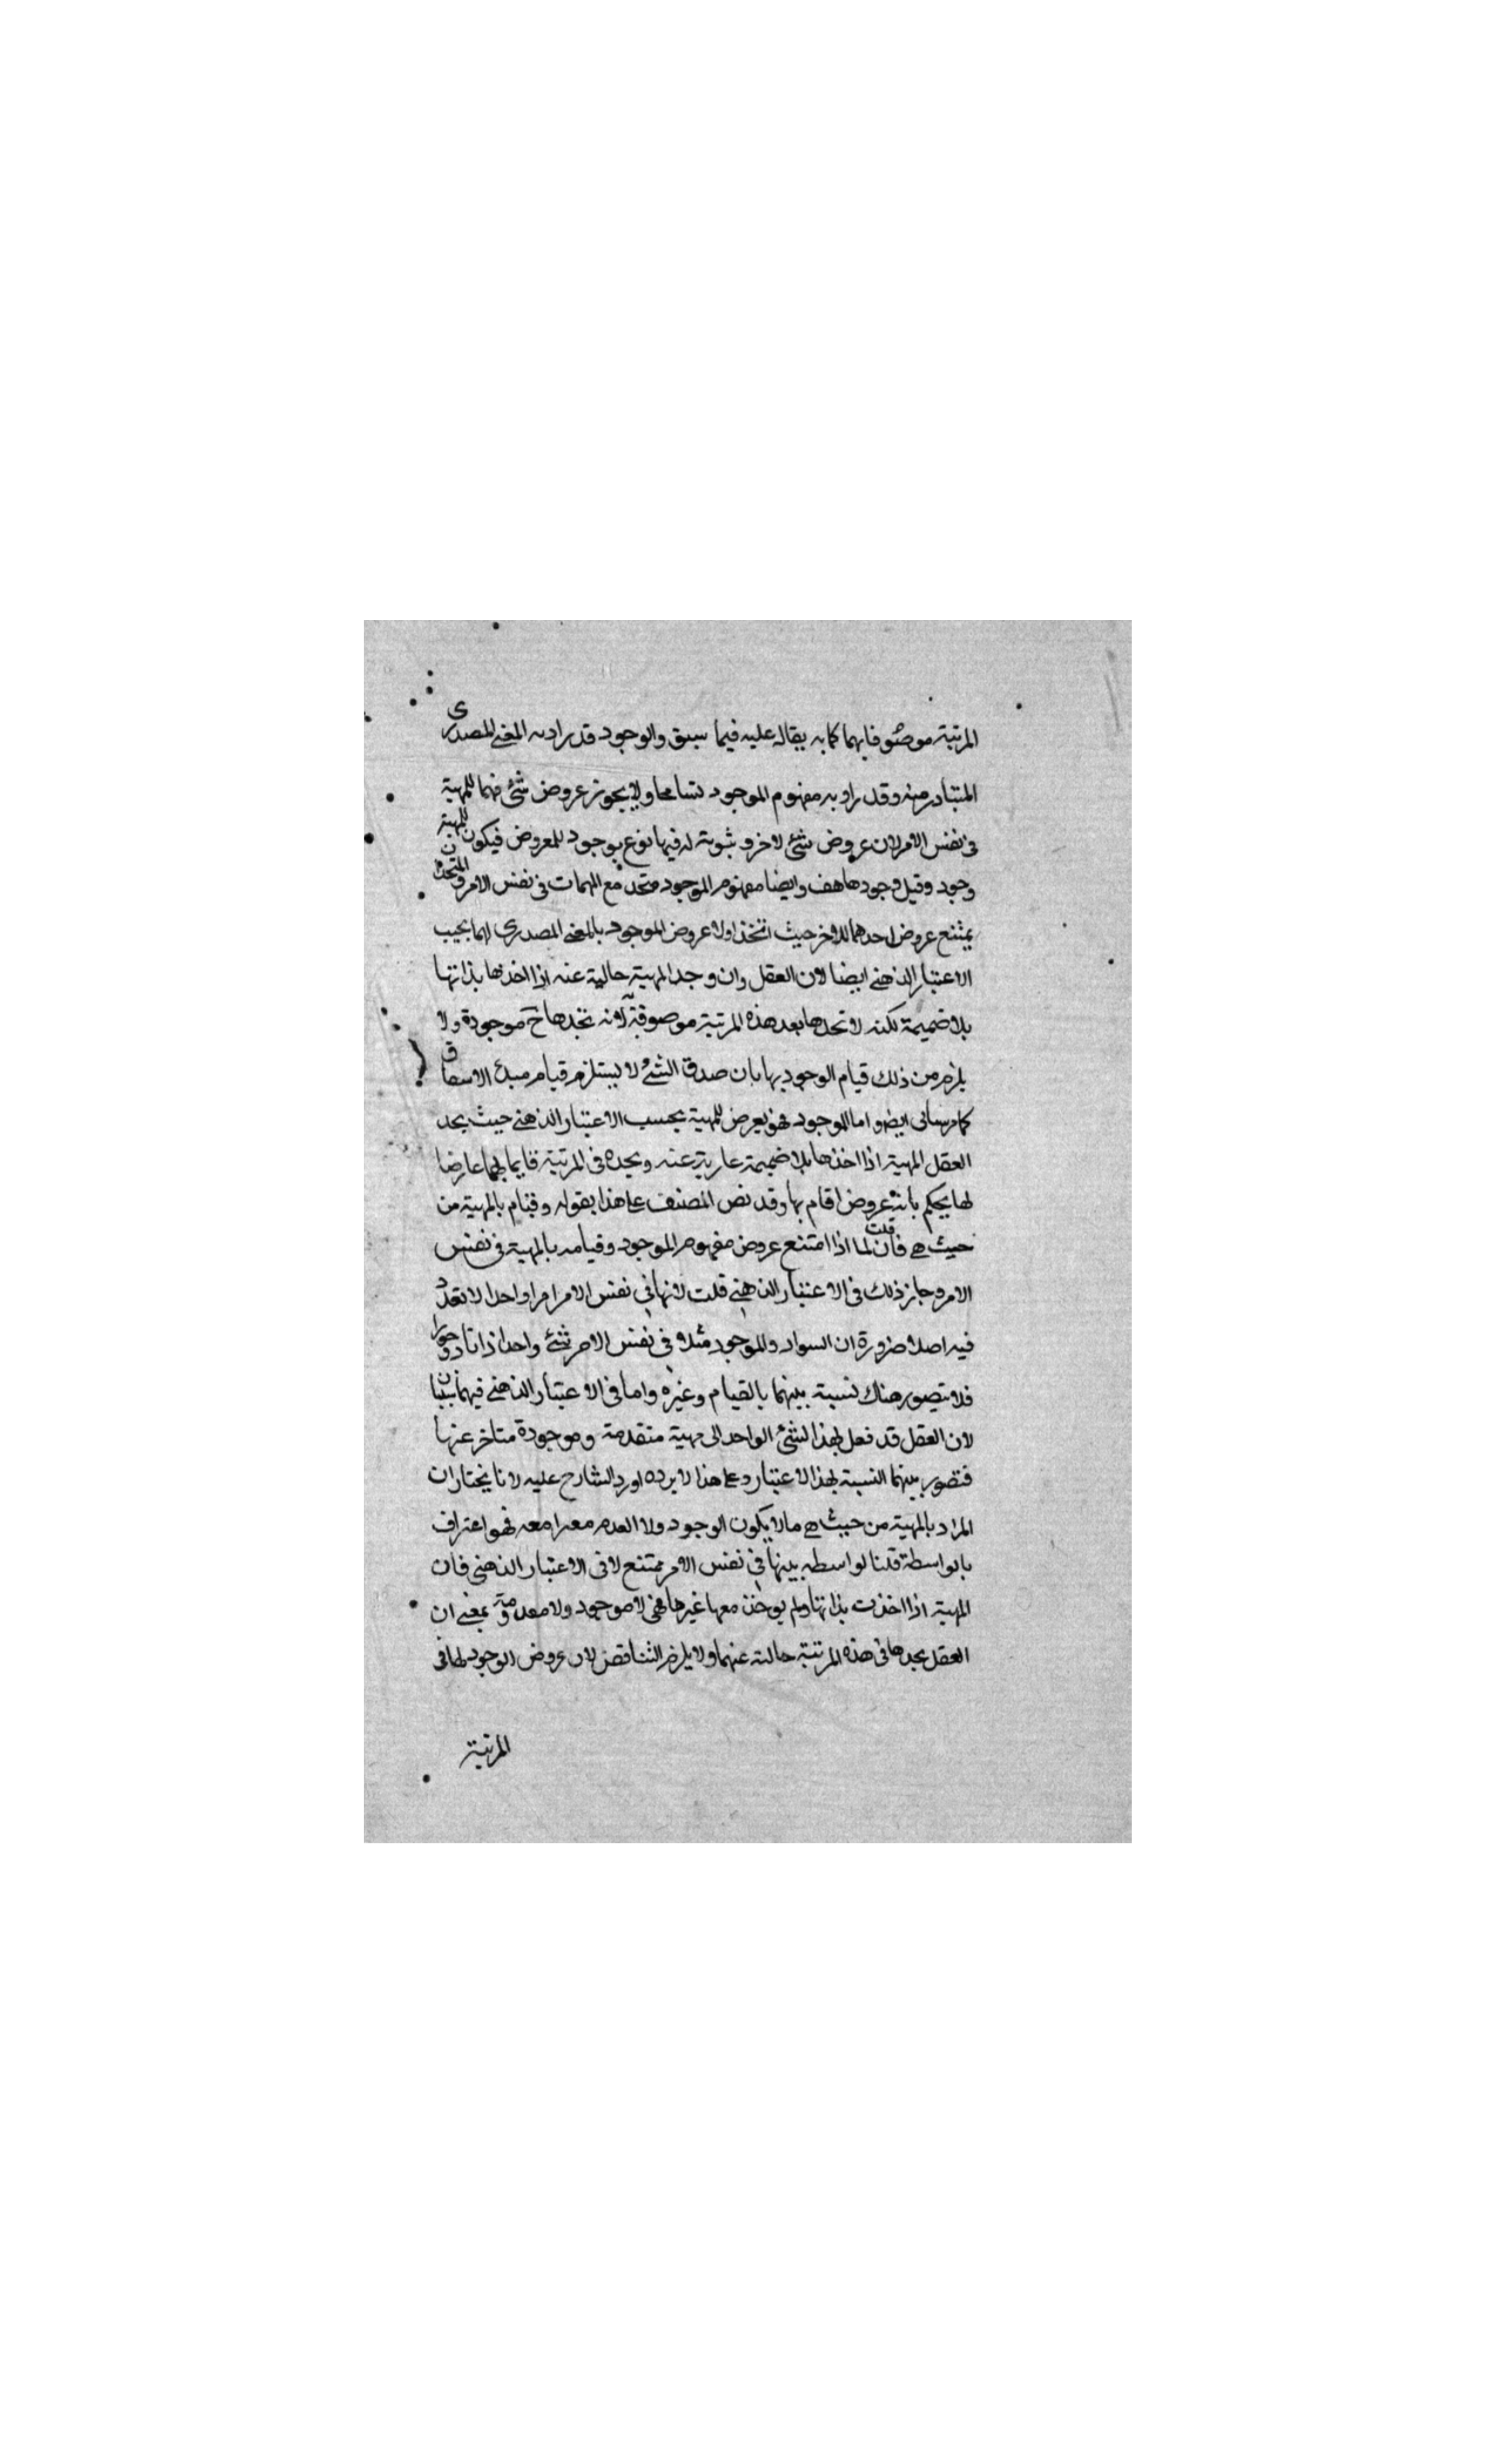 المرتبة موصوفا بهما كما به يقال عليه فيما سبق والوجود قد يراد به المعنى المصدرى
المتبادر منه وقد يراد به مفهوم الموجود تسامحا ولا يجوز عروض شئ منهما للمهية
فى نفس الامر لان عروض شئ لاخر و ثبوته له فيها نوع وجود للمعروض فيكون للمهية
وجود وقبل وجودها هف وايضا مفهوم الموجود متحد مع المهيات فى نفس الامر والمتحدان
يمتنع عروض احدهما للاخر حيث اتخذا ولا عروض الموجود بالمعنى المصدرى لهما بحسب
الاعتبار الذهنى ايضا لان العقل وان وجد المهية خالية عنه اذا اخذها بذاتها
بلا ضميمة لكنه لا تجدها بعد هذه المرتبة موصوفة به لانه تجدها ح موجودة ولا
يلزم من ذلك قيام الوجود بها بان صدق الشئ لا يستلزم قيام مبدئ الاشتقاق
كما مر ايضا واما الموجود فهو يعرض للمهية بحسب الاعتبار الذهنى حيث يجد
العقل المهية اذا اخذها بلا ضميمة عارية عنه ويجده فى المرتبة قايما بها عارضا
لها يحكم بانه عروض اقام بها وقد نص المصنف على هذا بقوله و قيام بالمهية من
حيث هى فان قلت لما اذا امتنع عروض مفهوم الموجود وقيامه بالمهية فى نفس
الامر وجاز ذلك فى الاعتبار الذهنى قلت لانها فى نفس الامر امرا واحدا لا تعدد
فيه اصلا ضرورة ان السواد والموجود مثلا فى نفس الامر شئ واحد ذاتا ووجودا
فلا يتصور هناك نسبة بينهما بالقيام وغيره واما فى الاعتبار الذهنى فيهما شيئان
لان العقل قد فعل لهذا الشئ الواحد الى مهية متقدمة وموجودة متاخر عنها
فتصور بينهما النسبة بهذا الاعتبار وعلى هذا لا يرد ه اورد الشارح عليه لانا نختار ان
المراد بالمهية من حيث هى مالا يكون الوجود ولا العدم معه فهو اعتراف
بالواسطة قلنا لواسطه بينها فى نفس الامر ممتنع لا فى الاعتبار الذهنى فان
المهية اذا اخذت بذاتها ولم يوخذ معها غيرها فهى لا موجود ولا معدومة بمعنى ان
العقل يجدها فى هذه المرتبة خالية عنهما ولا يلزم التناقض لان عروض الوجود لها فى
المرتبة